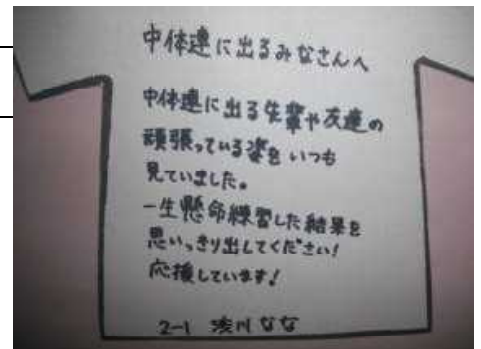 中体連に出るみなさんへ
中体連に出る先輩や友達の
頑張っている姿をいつも
見ていました。
一生懸命練習した結果を
思いっきり出してください!
応援しています!
2-1 湊川 なな